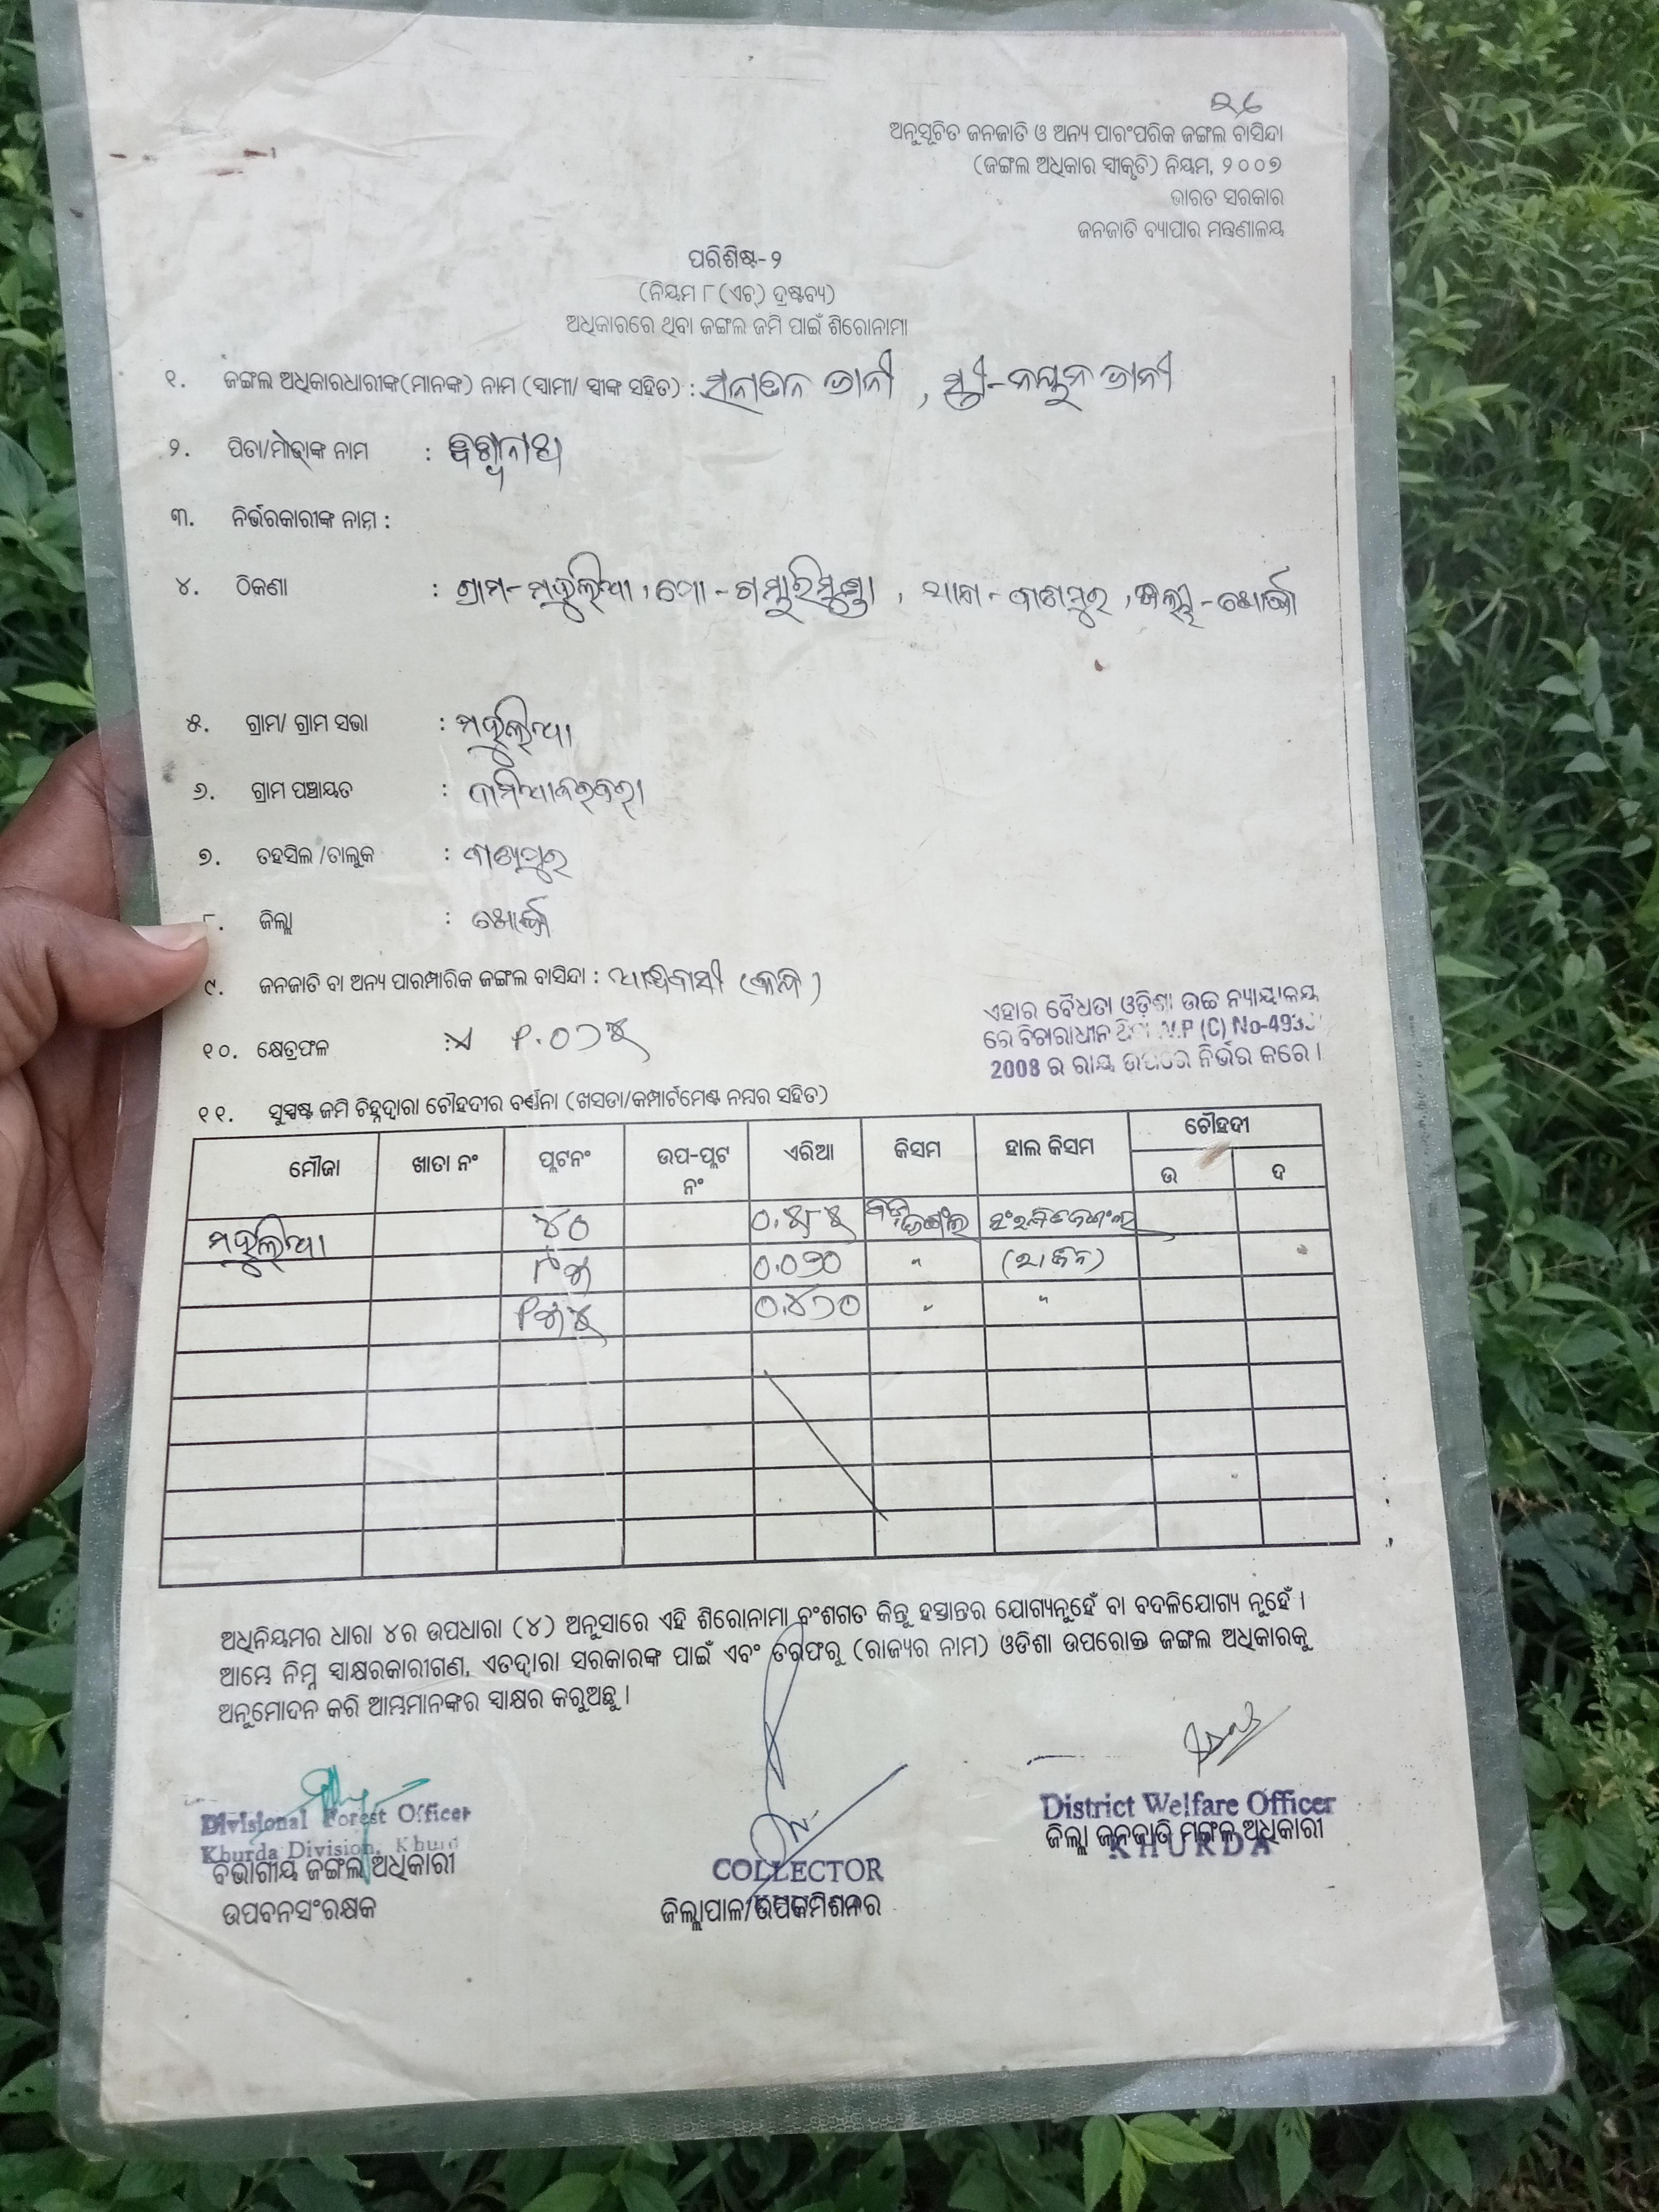 ୨୬
ଅନୁସୂଚିତ ଜନଜାତି ଓ ଅନ୍ୟ ପାରଂପରିକ ଜଙ୍ଗଲ ବାସିନ୍ଦା
(ଜଙ୍ଗଲ ଅଧିକାର ସ୍ୱୀକୃତି) ନିୟମ, ୨୦୦୭
ଭାରତ ସରକାର
ଜନଜାତି ବ୍ୟାପାର ମନ୍ତ୍ରଣାଳୟ
ପରିଶିଷ୍ଟ-୨
(ନିୟମ ୮ (ଏଚ୍) ଦ୍ରଷ୍ଟବ୍ୟ)
ଅଧିକାରରେ ଥିବା ଜଙ୍ଗଲ ଜମି ପାଇଁ ଶିରୋନାମା
୧. ଜଙ୍ଗଲ ଅଧିକାରଧାରୀଙ୍କ(ମାନଙ୍କ) ନାମ (ସ୍ୱାମୀ/ ସ୍ତ୍ରୀଙ୍କ ସହିତ) : ଜାନୀ , ସ୍ତ୍ରୀ- ଜାନୀ
୨. ପିତା/ମାତାଙ୍କ ନାମ :
୩. ନିର୍ଭରକାରୀଙ୍କ ନାମ :
୪. ଠିକଣା : ଗ୍ରାମ-ମହୁଲିଆ, ପୋ-ଗମ୍ଭାରିମୁଣ୍ଡା, ଥାନା-ବାଣପୁର, ଜିଲ୍ଲା-ଖୋର୍ଦ୍ଧା
୫. ଗ୍ରାମ/ ଗ୍ରାମ ସଭା : ମହୁଲିଆ
୬. ଗ୍ରାମ ପଞ୍ଚାୟତ :
୭. ତହସିଲ /ତାଲୁକ : ବାଣପୁର
୮. ଜିଲ୍ଲା : ଖୋର୍ଦ୍ଧା
୯. ଜନଜାତି ବା ଅନ୍ୟ ପାରମ୍ପାରିକ ଜଙ୍ଗଲ ବାସିନ୍ଦା : ଆଦିବାସୀ (କନ୍ଧ)
୧୦. କ୍ଷେତ୍ରଫଳ :
ଏହାର ବୈଧତା ଓଡ଼ିଶା ଉଚ୍ଚ ନ୍ୟାୟାଳୟ
ରେ ବିଚାରାଧୀନ ଥିବା W.P (C) No-4933
2008 ର ରାୟ ଉପରେ ନିର୍ଭର କରେ ।
୧୧. ସୁସ୍ପଷ୍ଟ ଜମି ଚିହ୍ନଦ୍ୱାରା ଚୌହଦୀର ବର୍ଣ୍ଣନା (ଖସଡା/କମ୍ପାର୍ଟମେଣ୍ଟ ନମ୍ବର ସହିତ)
ମୌଜା ଖାତା ନଂ ପ୍ଲଟନଂ ଉପ-ପ୍ଲଟ ନଂ ଏରିଆ କିସମ ହାଲ କିସମ ଚୌହଦୀ
ଉ ଦ
ମହୁଲିଆ ୪୦ ଜଙ୍ଗଲ
୦.୦୭୦ "
୦.୪୨୦ " "
ଅଧିନିୟମର ଧାରା ୪ର ଉପଧାରା (୪) ଅନୁସାରେ ଏହି ଶିରୋନାମା ବଂଶଗତ କିନ୍ତୁ ହସ୍ତାନ୍ତର ଯୋଗ୍ୟନୁହେଁ ବା ବଦଳିଯୋଗ୍ୟ ନୁହେଁ ।
ଆମ୍ଭେ ନିମ୍ନ ସ୍ୱାକ୍ଷରକାରୀଗଣ, ଏତଦ୍ୱାରା ସରକାରଙ୍କ ପାଇଁ ଏବଂ ତରଫରୁ (ରାଜ୍ୟର ନାମ) ଓଡିଶା ଉପରୋକ୍ତ ଜଙ୍ଗଲ ଅଧିକାରକୁ
ଅନୁମୋଦନ କରି ଆମ୍ଭମାନଙ୍କର ସ୍ୱାକ୍ଷର କରୁଅଛୁ ।
Divisional Forest Officer
Khurda Division, Khurda
ବିଭାଗୀୟ ଜଙ୍ଗଲ ଅଧିକାରୀ
ଉପବନସଂରକ୍ଷକ
COLLECTOR
ଜିଲ୍ଲାପାଳ/ଉପକମିଶନର
District Welfare Officer
ଜିଲ୍ଲା ଜନଜାତି ମଙ୍ଗଳ ଅଧିକାରୀ
KHURDA